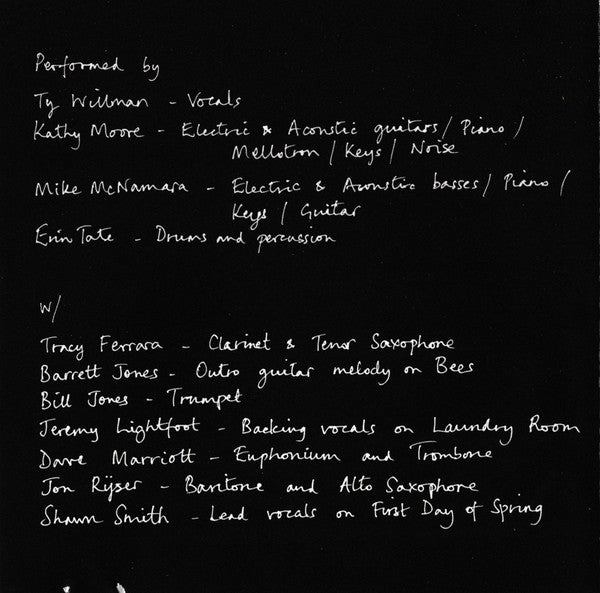 Performed by
Ty Willman - Vocals
Kathy Moore - Electric & Acoustic guitars / Piano /
Mellotron / Keys / Noise
Mike McNamara - Electric & Acoustic basses / Piano /
Keys / Guitar
Erin Tate - Drums and percussion
w/
Tracy Ferrara - Clarinet & Tenor Saxophone
Barrett Jones - Outro guitar melody on Bees
Bill Jones - Trumpet
Jeremy Lightfoot - Backing vocals on Laundry Room
Dave Marriott - Euphonium and Trombone
Jon Rijser - Baritone and Alto Saxophone
Shawn Smith - Lead vocals on First Day of Spring